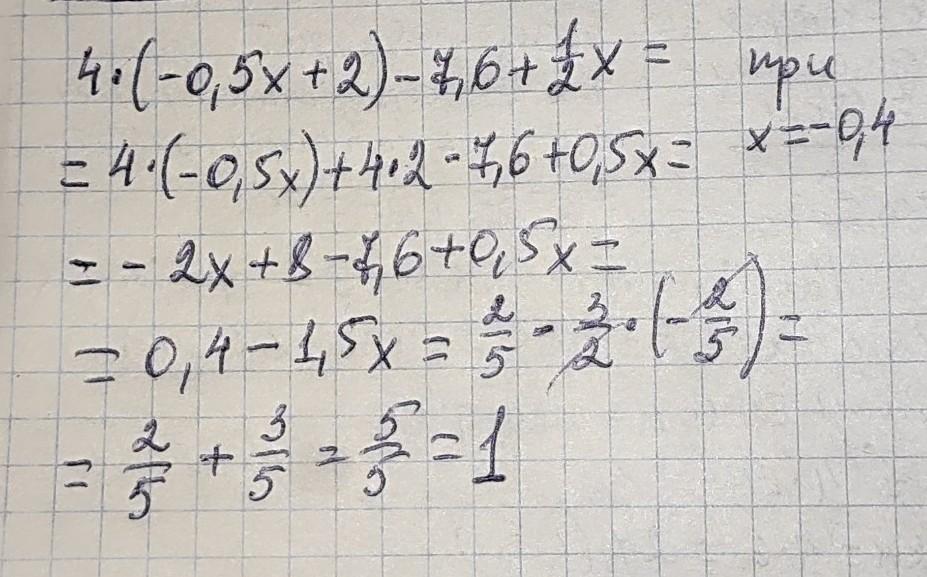 4·(-0,5x+2)-7,6+1/2x= при
=4·(-0,5x)+4·2-7,6+0,5x= x=-0,4
=-2x+8-7,6+0,5x=
=0,4-1,5x=2/5-3/2·(-2/5)=
=2/5+3/5=5/5=1